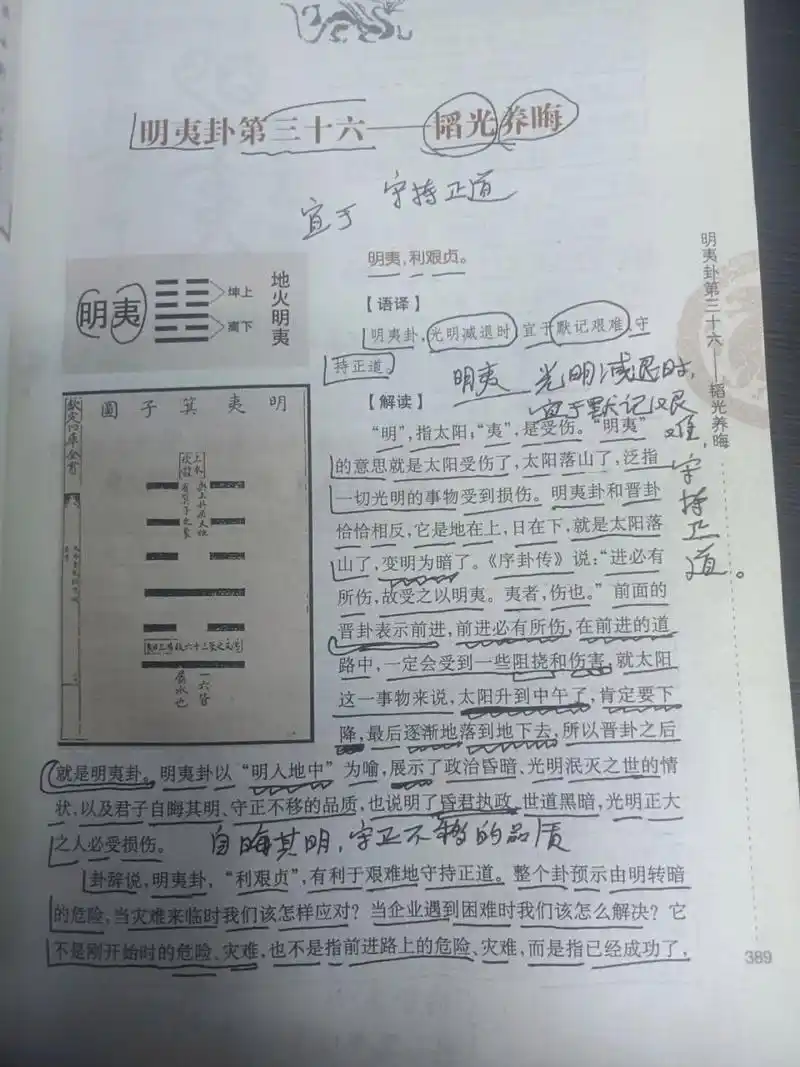 明夷卦第三十六——韬光养晦
宜于 守持正道
明夷
坤上
离下
地火明夷
明夷,利艰贞。
【语译】
明夷卦,光明减退时 宜于默记艰难,守
持正道。
明夷 光明减退时,
宜于默记艰
难,守持正道。
【解读】
“明”,指太阳;“夷”,是受伤。“明夷”
的意思就是太阳受伤了,太阳落山了,泛指
一切光明的事物受到损伤。明夷卦和晋卦
恰恰相反,它是地在上,日在下,就是太阳落
山了,变明为暗了。《序卦传》说:“进必有
所伤,故受之以明夷。夷者,伤也。”前面的
晋卦表示前进,前进必有所伤,在前进的道
路中,一定会受到一些阻挠和伤害,就太阳
这一事物来说,太阳升到中午了,肯定要下
降,最后逐渐地落到地下去,所以晋卦之后
就是明夷卦。明夷卦以“明入地中”为喻,展示了政治昏暗、光明泯灭之世的情
状,以及君子自晦其明、守正不移的品质,也说明了昏君执政,世道黑暗,光明正大
之人必受损伤。
自晦其明,守正不移的品质
卦辞说,明夷卦,“利艰贞”,有利于艰难地守持正道。整个卦预示由明转暗
的危险,当灾难来临时我们该怎样应对?当企业遇到困难时我们该怎么解决?它
不是刚开始时的危险、灾难,也不是指前进路上的危险、灾难,而是指已经成功了,
明夷箕子图
钦定四库全书
一六皆
属水也
明夷卦第三十六——韬光养晦
389